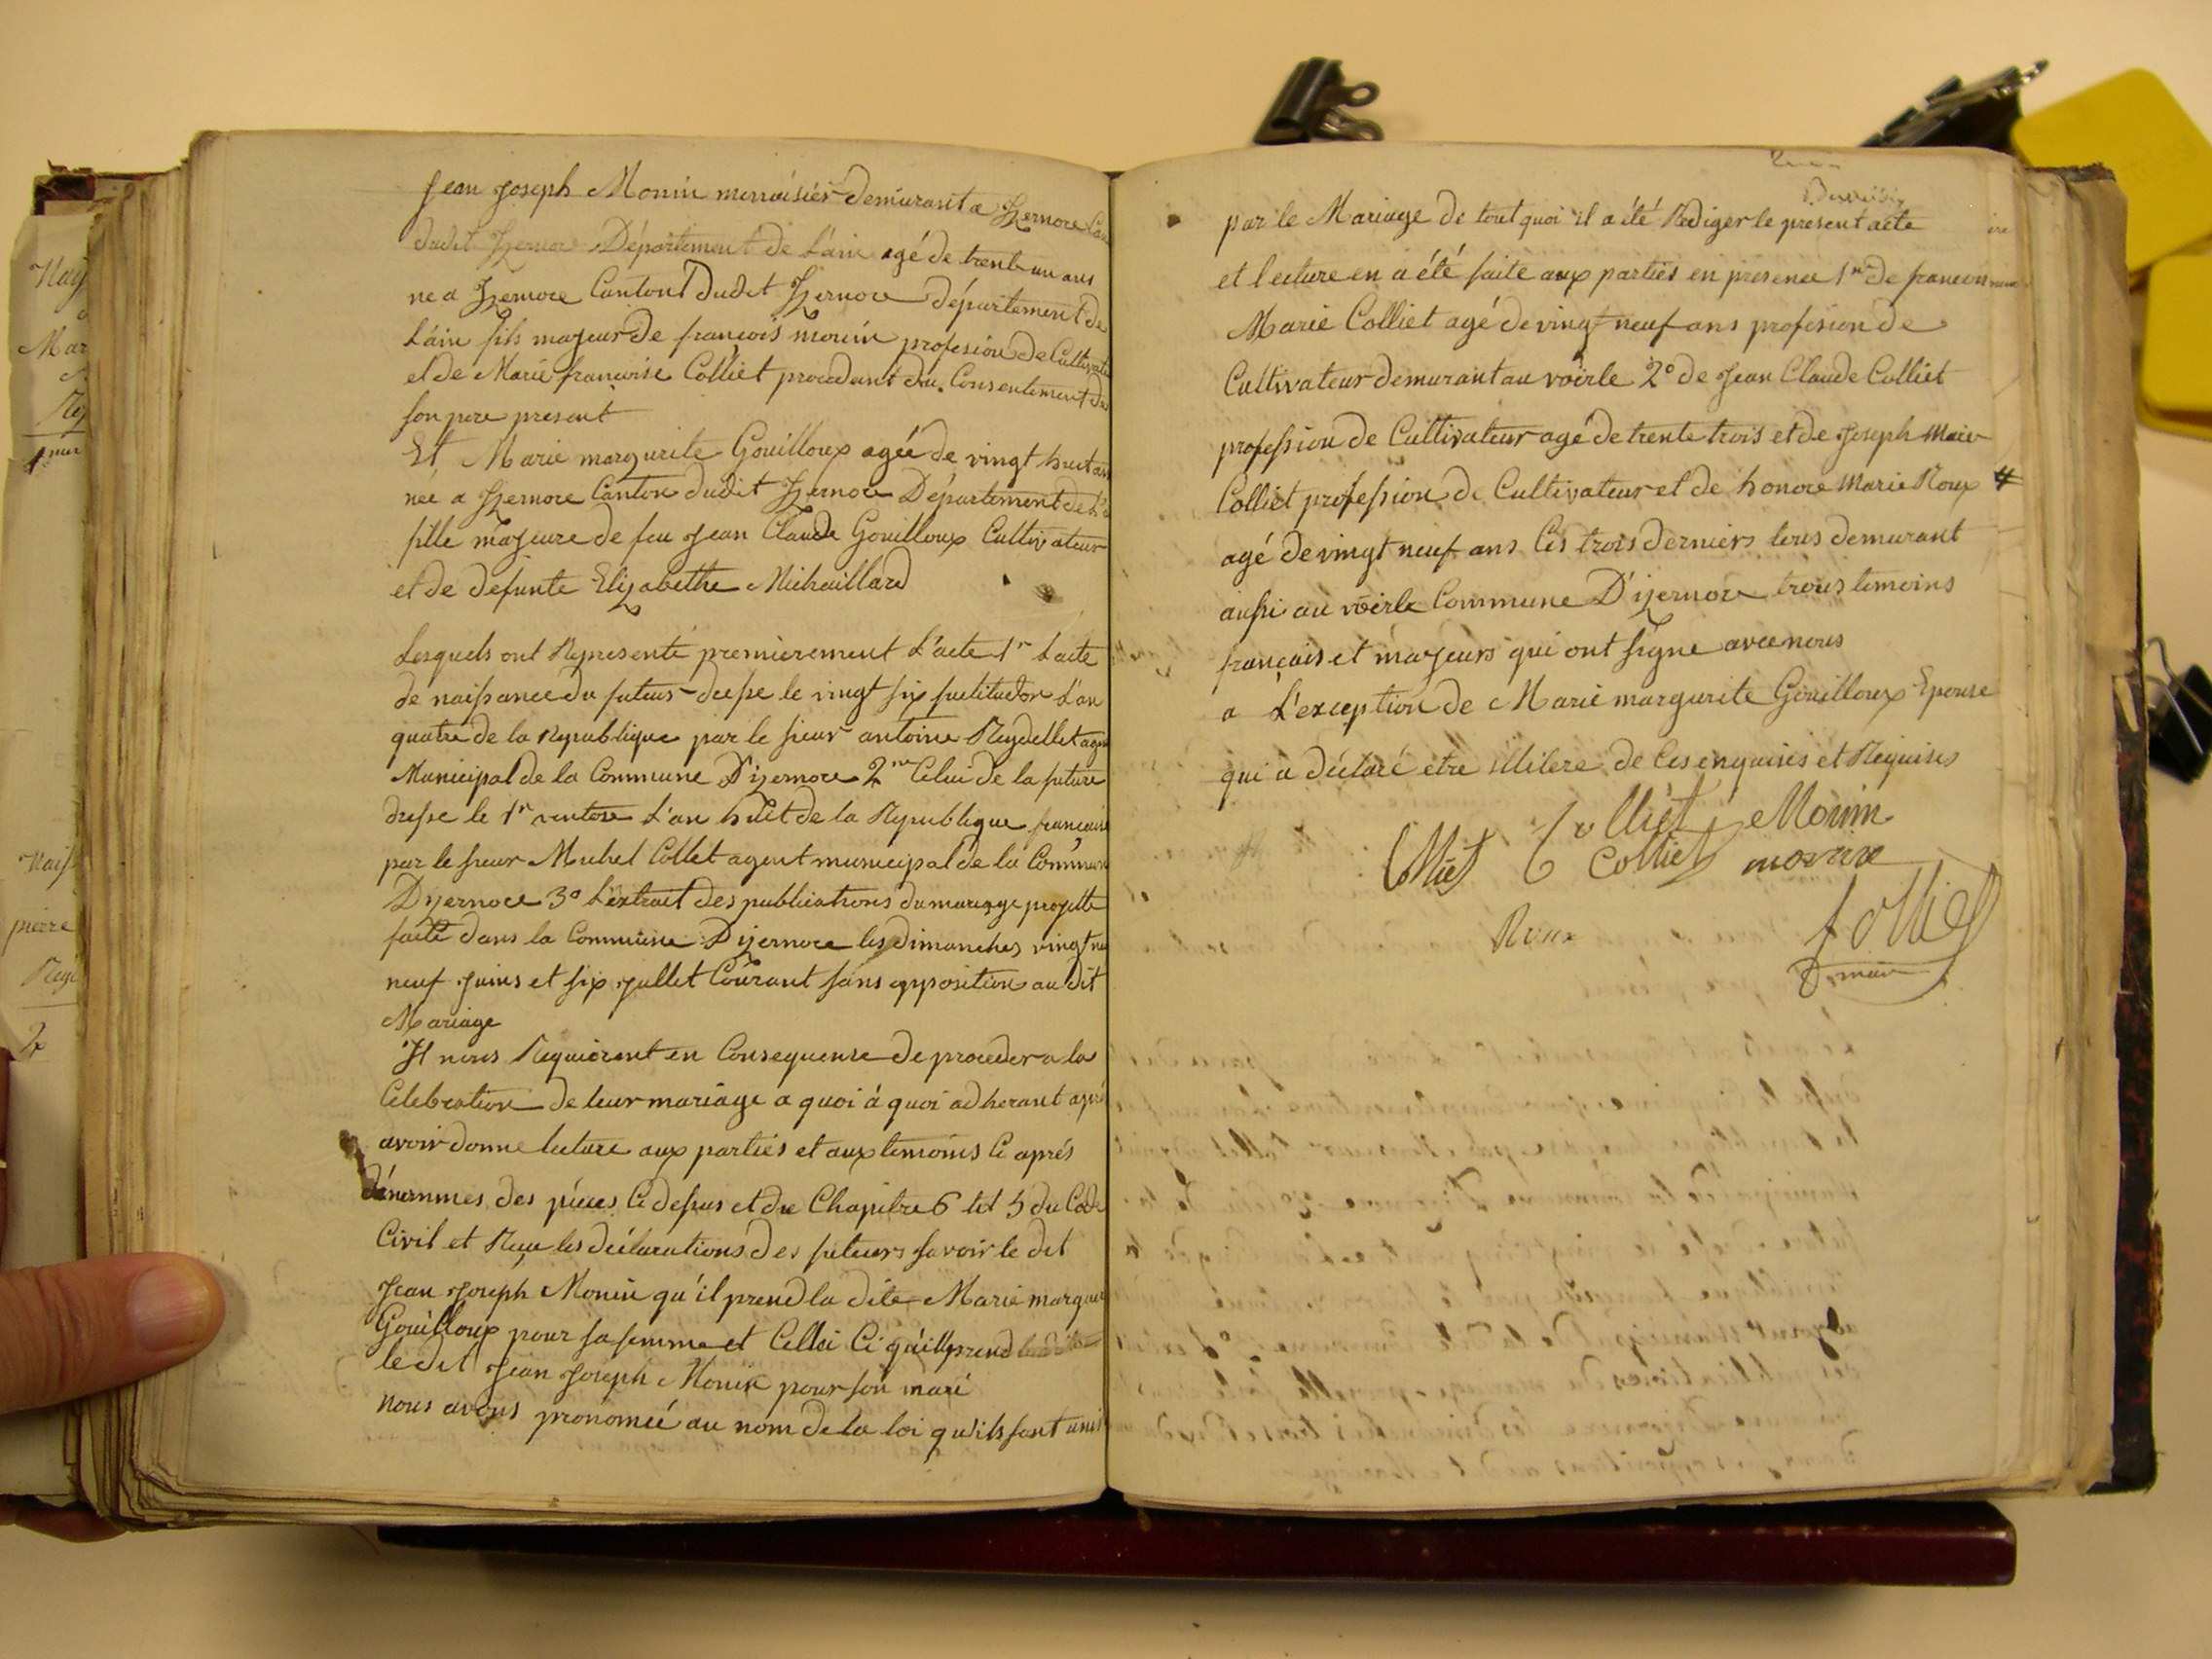 Jean Joseph Monin menuisier demurant a Izernore
dudit Izernore Département de L'ain agé de trente un ans
ne a Izernore Canton dudit Izernore département de
L'ain fils majeur de françois monin profesion de Cultivate
et de Marie francoise Colliet procedant du Consentement de
son pere present
Et Marie margurite Gouilloux agée de vingt huit ans
née a Izernore Canton dudit Izernore Département de L'a
fille majeure de feu Jean Claude Gouilloux Cultivateur
et de defunte Elizabethe Michaillard
Lesquels ont Represente premierement L'acte 1r Lacte
de naissance du futeur dresse le vingt six L'an
quatre de la Republique par le sieur antoine Reydellet agen
Municipal de la Commune D'izernore 2me Celui de la future
dresse le 1r ventose L'an huit de la Republique francaise
par le sieur Michel Collet agent municipal de la Commune
Dizernore 3o Lextrait des publications du mariage projette
faite dans la Commune Dizernore les dimanches vingt
neuf Juins et six Jullet Courant sans opposition au dit
Mariage
Il nous Requièrent en Consequense de proceder a la
Celebration de leur mariage a quoi á quoi adherant aprè
avoir donne lecture aux parties et aux temoins Ci aprés
dénommes des pièces Ci dessus et du Chapitre 6 tit 5 du Code
Civil et Reçu les déclarations des futeurs savoir le dit
Jean Joseph Monin qu'il prend la dite Marie margue
Gouilloux pour sa femme et Celloi Ci qu'ill prend
le dit Jean Joseph Monin pour son mari
nous avons pronomcé au nom de la loi qu'ils sont unis
par le Mariage de tout quoi il a été Rediger le present acte
et lecture en a été faite aux parties en presence 1me de francois
Marie Colliet agé de vingt neuf ans profesion de
Cultivateur demurant au voirle 2o de Jean Claude Colliet
profession de Cultivateur agé de trente trois et de Joseph Marie
Colliet profession de Cultivateur et de honore Marie Roux #
agé de vingt neuf ans Ces trois derniers demurant
aussi au voirle Commune D'izernore temoins
français et majeurs qui ont signe avec nous
a L'exception de Marie margurite Gouilloux Epouse
qui a déclaré etre illitere de Ces enquises et Requises
Colliet Colliet Monin
Colliet monin
Roux
maire
Nais
Mar
Nais
pierre
2